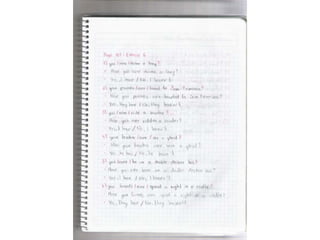 Page 107 - Exercise 6
1) you / ever / write a song?
- Have you ever written a song?
- Yes, I have / No, I haven't.
2) your parents / ever / travel to San Francisco?
- Have your parents ever travelled to San Francisco?
- Yes, they have / No, they haven't.
3) you / ever / ride a
- Have you ever ridden a
- Yes, I have / No, I haven't.
4) your teacher / ever / see a ghost?
- Has your teacher ever seen a ghost?
- Yes, he has / No, he hasn't.
5) you / ever / be on a double-decker bus?
- Have you ever been on a double-decker bus?
- Yes, I have / No, I haven't.
6) your friends / ever / spend a night in a castle?
- Have your friends ever spent a night in a castle?
- Yes, they have / No, they haven't.